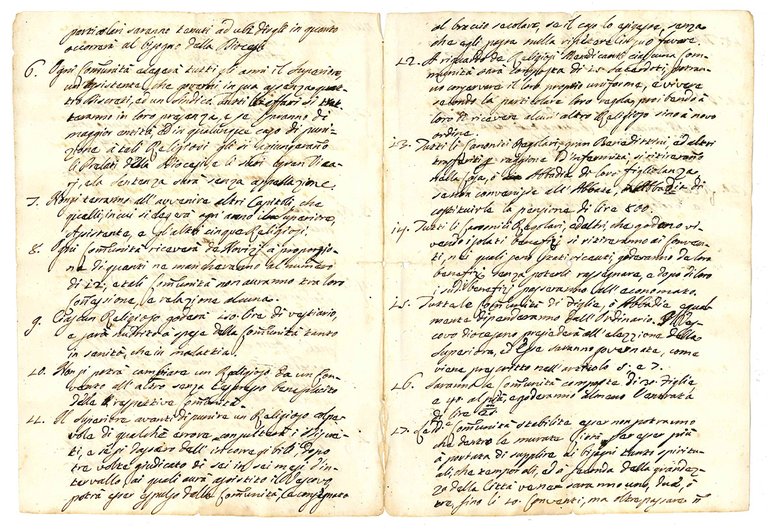 particolari saranno tenuti ad ubidirgli in quanto
occorrerà al bisogno della Diocesi
6. Ogni Comunità eleggerà tutti gli anni il Superiore,
un assistente che governi in sua assenza quat-
tro Discreti, ed un Sindico, tutti gli affari si trat-
teranno in loro presenza, e se saranno di
maggior entità, ed in qualunque caso di puni-
zione a tali Religiosi gli si
li Prelati della Diocesi, e li Gran Vica-
ri, e la sentenza sarà senza appellazione.
7. Non si terranno all'avvenire altri Capitoli, che
quelli, in cui si deve ogni anno Superiore,
Assistente, e gl'altri cinque Religiosi.
8. Ogni Comunità riceverà de Novizi a proporzio-
ne di quanti ne mancheranno al numero
di 12; e tali Comunità non avranno tra loro
Connessione, e relazione alcuna.
9. Ciascun Religioso goderà 120 lire di vestiario,
e sarà nutrito a spese della Comunità tanto
in sanità, che in malattia.
10. Non si potrà cambiare un Religioso da un Con-
vento all'altro senza l'espresso beneplacito
delle rispettive Comunità.
11. Il Superiore avanti di punire un Religioso colpe-
vole di qualche errore, consulterà i Discre-
ti, e se si dassero dell'incorregibili dopo
tre volte giudicato di sei in sei mesi d'in-
tervallo, ai quali avrà assistito il Vescovo
potrà esser espulso dalla Comunità, e consegnato
al braccio secolare, se il caso lo esigesse, senza
che egli possa nulla ripetere in suo favore.
12. A riguardo de Religiosi Mendicanti ciascuna Com-
munità sarà composta di 15 sacerdoti, potran-
no conservare il loro proprio uniforme, e vivere
secondo la particolare loro regola, proibendo a
loro il ricevere alcun altro Religioso sino a novo
ordine.
13. Tutti li Canonici Regolari, Benedittini, ed altri
trasferiti per raggione d'infermità, si ritireranno
nella Casa, o Abbadia di loro figliolanza,
se non convenisse all'Abbate, nell'Abbadia di
costituirle la pensione di lire 800.
14. Tutti li Canonici Regolari, ed altri, che godono vi-
vendo isolati benefizi si ritireranno ai Conven-
ti, nei quali sono stati ricevuti, goderanno de loro
benefizi senza poterli rassegnare, e dopo di loro
i suoi benefizi passeranno all'economato.
15. Tutte le Comunità di Figlie, o Abbadie equal-
mente dipenderanno dall'Ordinario. Il Ves-
covo diocesano presiederà all'elezzione della
Superiora, ed esse saranno governate, come
viene prescritto nell'articolo 5. e 7.
16. Saranno le Comunità composte di 35 Figlie
e 45 al più, e goderanno almeno l'entrata
di lire
17. Le Comunità stabilite esser non potranno
che dentro le murate Città per esser più
a portata di supplire ai bisogni tanto spiritu-
ali, che temporali, ed a seconda della grandez-
za della Città ve ne saranno uno, due, o
tre, sino li 10. Conventi, ma oltrepassare n